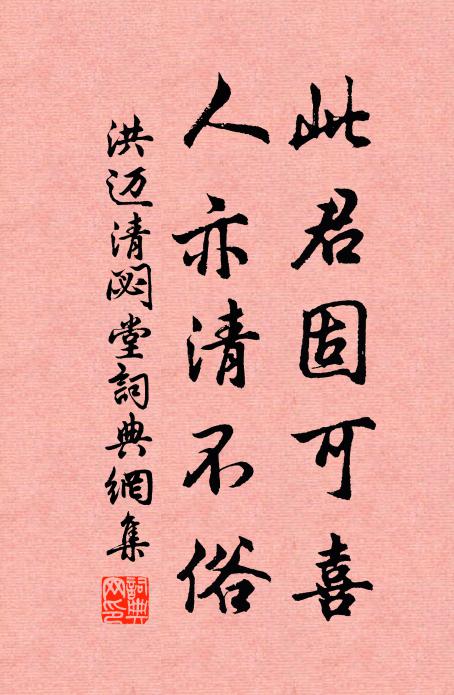 此君固可喜
人亦清不俗
洪迈清閟堂詞典網集
詞典網印